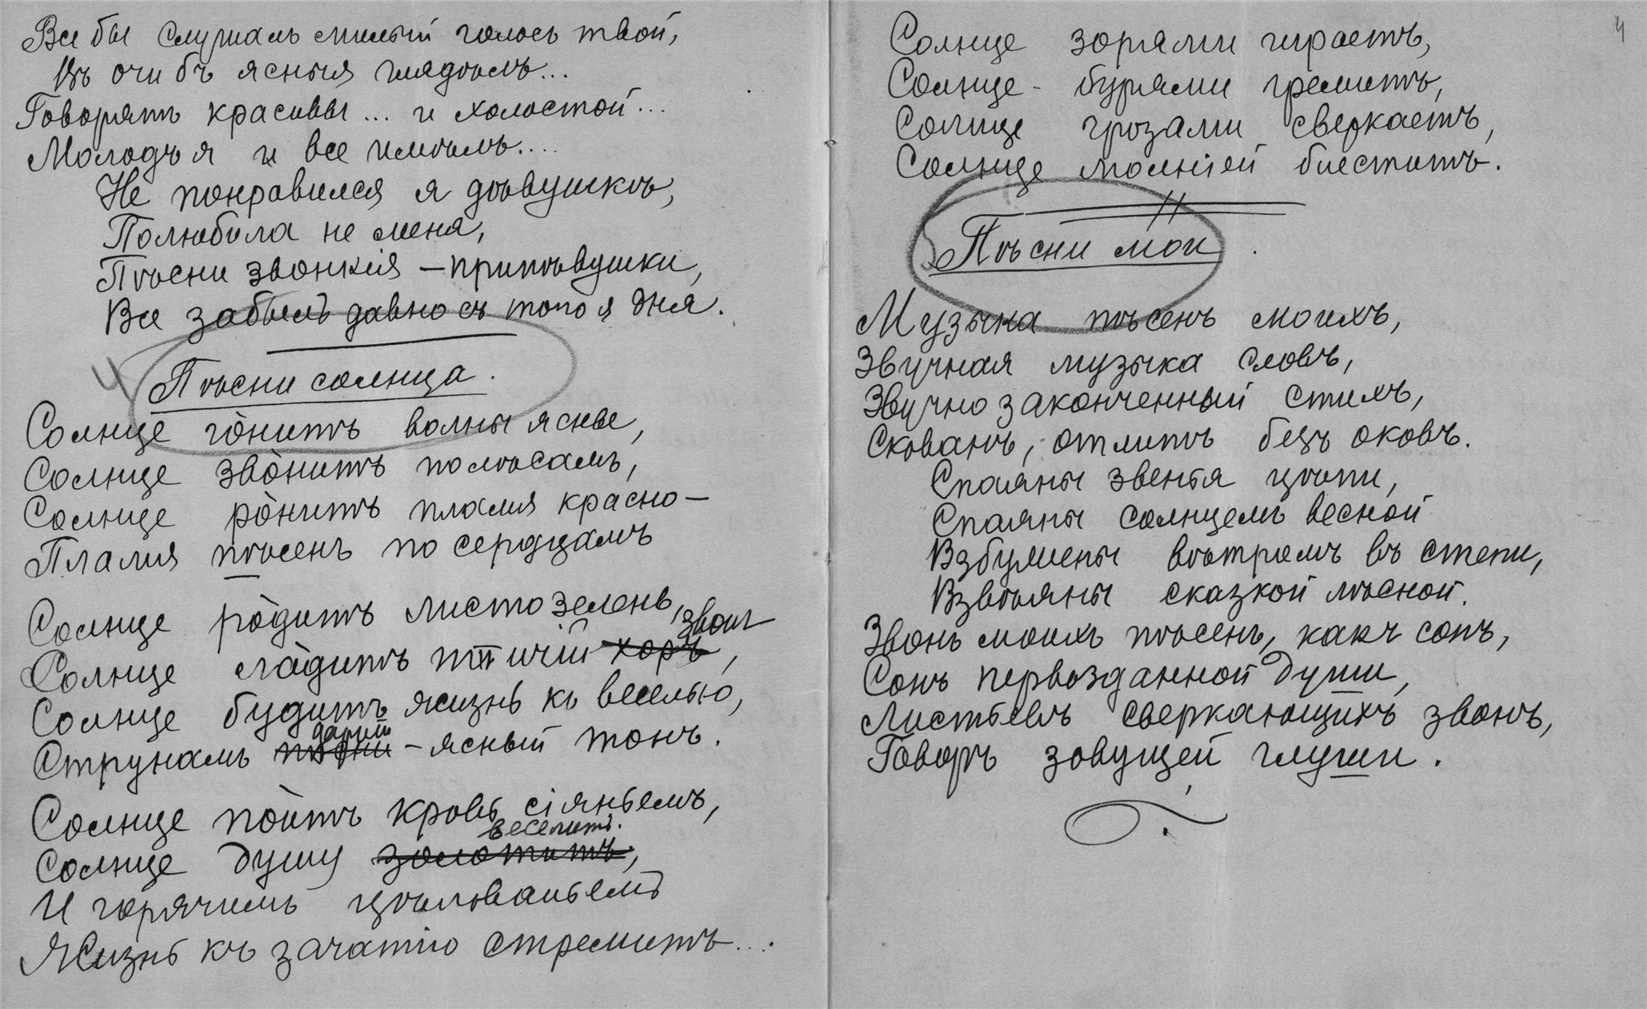 Все бы слушалъ милый голосъ твой,
Въ очи бъ ясныя глядѣлъ...
Говорятъ красивы ... и холостой...
Молодъ я и все имѣлъ....
Не понравился я дѣвушкѣ,
Полюбила не меня,
Пѣсни звонкія – припѣвушки,
Все забылъ давно съ того я дня.
Пѣсни солнца.
Солнце го́нитъ волны ясные,
Солнце зво́нитъ по лѣсамъ,
Солнце ро́нитъ пламя красно –
Пламя пѣсенъ по сердцамъ
Солнце ро́дитъ листозелень,
звонъ
Солнце ла́дитъ птичій хоръ,
Солнце будитъ жизнь къ веселью,
даритъ
Струнамъ – ясный тонъ.
Солнце по́итъ кровь сіяньемъ,
веселитъ.
Солнце душу золотитъ,
И горячимъ цѣлованьемъ
Жизнь къ зачатію стремитъ....
4
Солнце зорями играетъ,
Солнце - бурями гремитъ,
Солнце грозами сверкаетъ,
Солнце молніей блеститъ.
Пѣсни мои
Музыка пѣсенъ моихъ,
Звучная музыка словъ,
Звучно законченный стихъ,
Скованъ, отлитъ безъ оковъ.
Спаяны звенья цѣпи,
Спаяны солнцемъ весной
Взбумены вѣтромъ въ степи,
Взвѣяны сказкой лѣсной.
Звонъ моихъ пѣсенъ, какъ сонъ,
Сонъ первозданной души,
Листьевъ сверкающихъ звонъ,
Говоръ зовущей глуши.